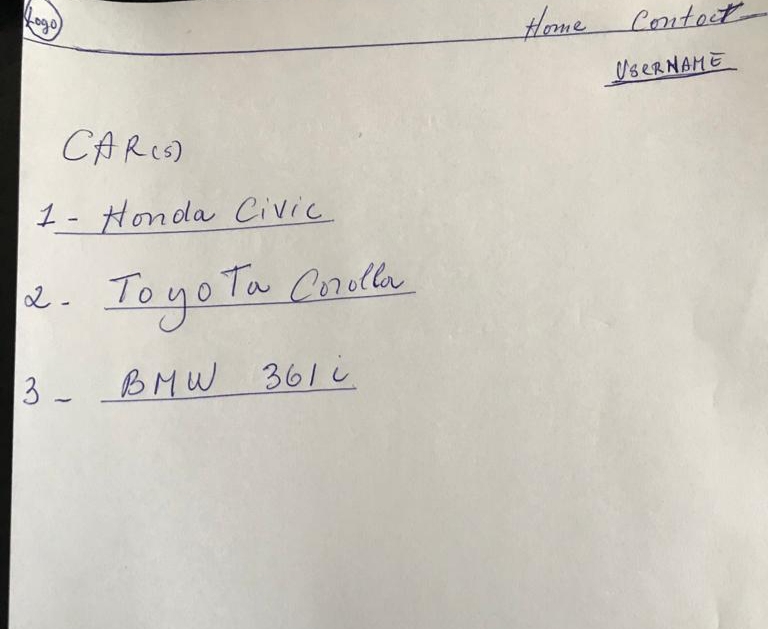 Logo Home Contact
USERNAME
CAR(s)
1 - Honda Civic
2 - Toyota Corolla
3 - BMW 361i